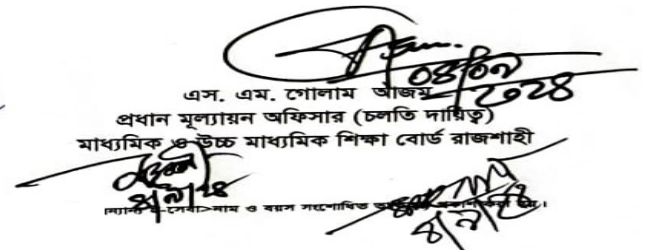 ০৪/০৯
২০২৪
এস. এম. গোলাম আজম
প্রধান মূল্যায়ন অফিসার (চলতি দায়িত্ব)
মাধ্যমিক ও উচ্চ মাধ্যমিক শিক্ষা বোর্ড রাজশাহী
নাম ও বয়স সংশোধিত
৪/৯/২৪
৪/৯/২৪